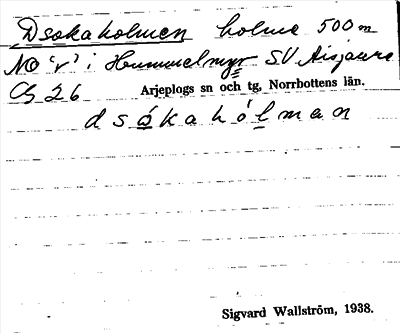 Dsokaholmen holme 500 m
NO "r" i Hummelmyr SV Aisjaure
Cg 26 Arjeplogs sn och tg, Norrbottens län.
d s å k a h ó l m a n
Sigvard Wallström, 1938.